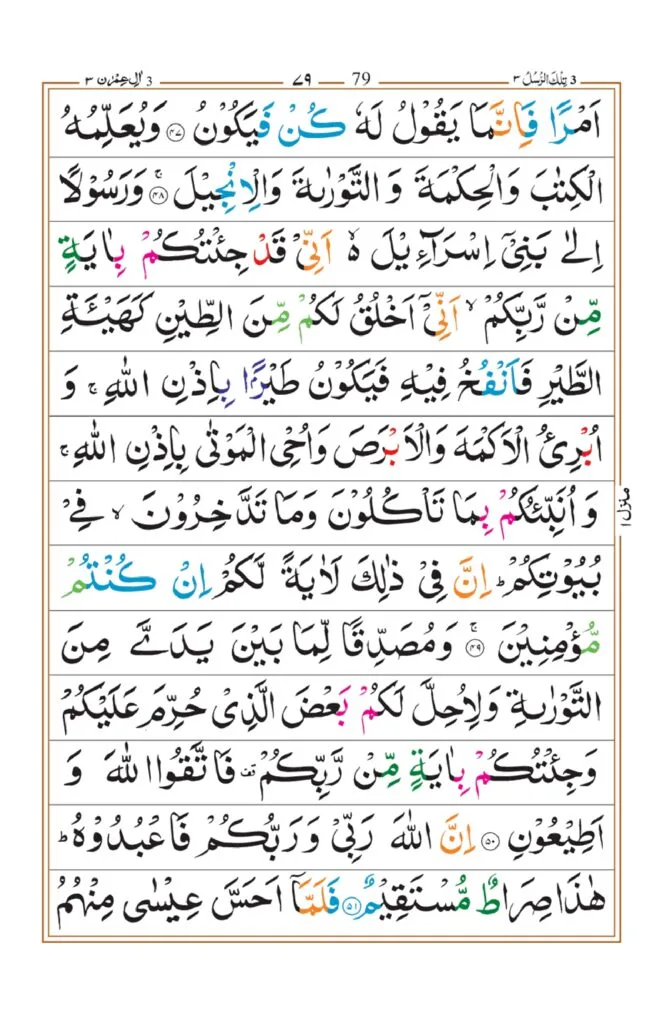 اٰل عِمْرٰن ٣ 3 ٧٩ 79 3 تِلْكَ الرُّسُلُ ٣
اَمْرًا فَاِنَّمَا يَقُوْلُ لَهٗ كُنْ فَيَكُوْنُ ﴿٤٧﴾ وَيُعَلِّمُهُ
الْكِتٰبَ وَالْحِكْمَةَ وَ التَّوْرٰىةَ وَالْاِنْجِيْلَ ﴿٤٨﴾ۚ وَرَسُوْلًا
اِلٰى بَنِيْۤ اِسْرَآءِيْلَ ۙ۬ اَنِّيْ قَدْ جِئْتُكُمْ بِاٰيَةٍ
مِّنْ رَّبِّكُمْ ۙ اَنِّيْۤ اَخْلُقُ لَكُمْ مِّنَ الطِّيْنِ كَهَيْـَٔةِ
الطَّيْرِ فَاَنْفُخُ فِيْهِ فَيَكُوْنُ طَيْرًۢا بِاِذْنِ اللّٰهِ ۚ وَ
اُبْرِئُ الْاَكْمَهَ وَالْاَبْرَصَ وَاُحْيِ الْمَوْتٰى بِاِذْنِ اللّٰهِ ۚ
وَ اُنَبِّئُكُمْ بِمَا تَاْكُلُوْنَ وَمَا تَدَّخِرُوْنَ ۙ فِيْ
بُيُوْتِكُمْ ؕ اِنَّ فِيْ ذٰلِكَ لَاٰيَةً لَّكُمْ اِنْ كُنْتُمْ
مُّؤْمِنِيْنَ ﴿٤٩﴾ۚ وَمُصَدِّقًا لِّمَا بَيْنَ يَدَيَّ مِنَ
التَّوْرٰىةِ وَلِاُحِلَّ لَكُمْ بَعْضَ الَّذِيْ حُرِّمَ عَلَيْكُمْ
وَجِئْتُكُمْ بِاٰيَةٍ مِّنْ رَّبِّكُمْ ۫ فَاتَّقُوا اللّٰهَ وَ
اَطِيْعُوْنِ ﴿٥٠﴾ اِنَّ اللّٰهَ رَبِّيْ وَرَبُّكُمْ فَاعْبُدُوْهُ ؕ
هٰذَا صِرَاطٌ مُّسْتَقِيْمٌ ﴿٥١﴾ فَلَمَّاۤ اَحَسَّ عِيْسٰى مِنْهُمُ
منزل ١